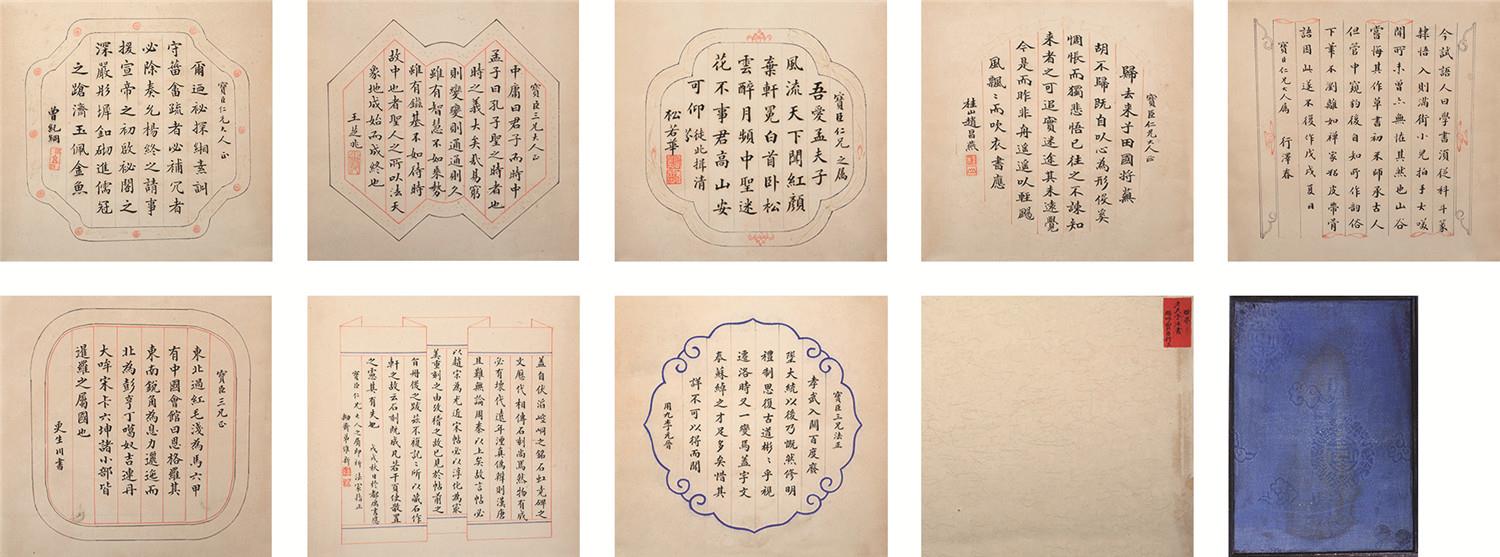 寶臣仁兄大人正
爾迺祕探緗素訓
守菑畬疏者必補冗者
必除奏允楊終之請事
援宣帝之初啟祕閣之
深嚴彤墀釦砌進儒冠
之蹌濟玉佩金魚
寶臣三兄大人正
中庸曰君子而時中
孟子曰孔子聖之時者也
時之義大矣哉易窮
則變變則通通則久
雖有智慧不如乘勢
雖有鎡基不如待時
故中也者聖人之所以法天
象地成始而成終也
王芝兆
寶臣仁兄之屬
吾愛孟夫子
風流天下聞紅顏
棄軒冕白首臥松
雲醉月頻中聖迷
花不事君高山安
可仰徒此揖清芬
松若華
寶臣仁兄大人正
歸去來子田國將蕪
胡不歸既自以心為形役奚
惆悵而獨悲悟已往之不諫知
來者之可追實迷途其未遠覺
今是而昨非舟遙遙以輕颺
風飄〻而吹衣書應
桂山趙昌燕
今試語人曰學書須從科斗篆
隸悟入則滿街小兒拍手大
聞所未曾六無怪其然也山谷
嘗悔其作草書初不師承古人
但管中窺豹後自知所作詞俗
下筆不劉離如禪家粘皮帶骨
語因此遂不復作戊戌夏日
寶臣仁兄大人屬 行澤春
寶臣三兄正
東北過紅毛淺為馬六甲
有中國會館曰恩格羅其
東南銳角為息力邐迤而
北為彭亨丁噶奴吉連丹
大哖宋卡六坤諸小部皆
暹羅之屬國也
更生川書
蓋自伏滔崆峒之銘石虹克碑之
文歷代相傳石刻尚焉然物有成
必有壞代遠年湮真偽辨則漢唐
且難無論周秦以上矣故言帖必
以趙宋為尤近宋帖必以淳化為最
美重刻之由攷稽之故已見於帖前之
百冊後之跋茲不復記記所以藏石作
軒之故云石刻既成凡若干頁使散置
之憲其有失也 戊戌秋日於都寓書應
寶臣仁兄大人之屬即祈 法家指正
寶臣三兄法正
孝武入關百度廢
墜大統以後乃慨然修明
禮制思復古道彬〻乎視
遷洛時又一變焉蓋宇文
泰蘇綽之才足多矣惜其
詳不可以得而聞
用九李元晉